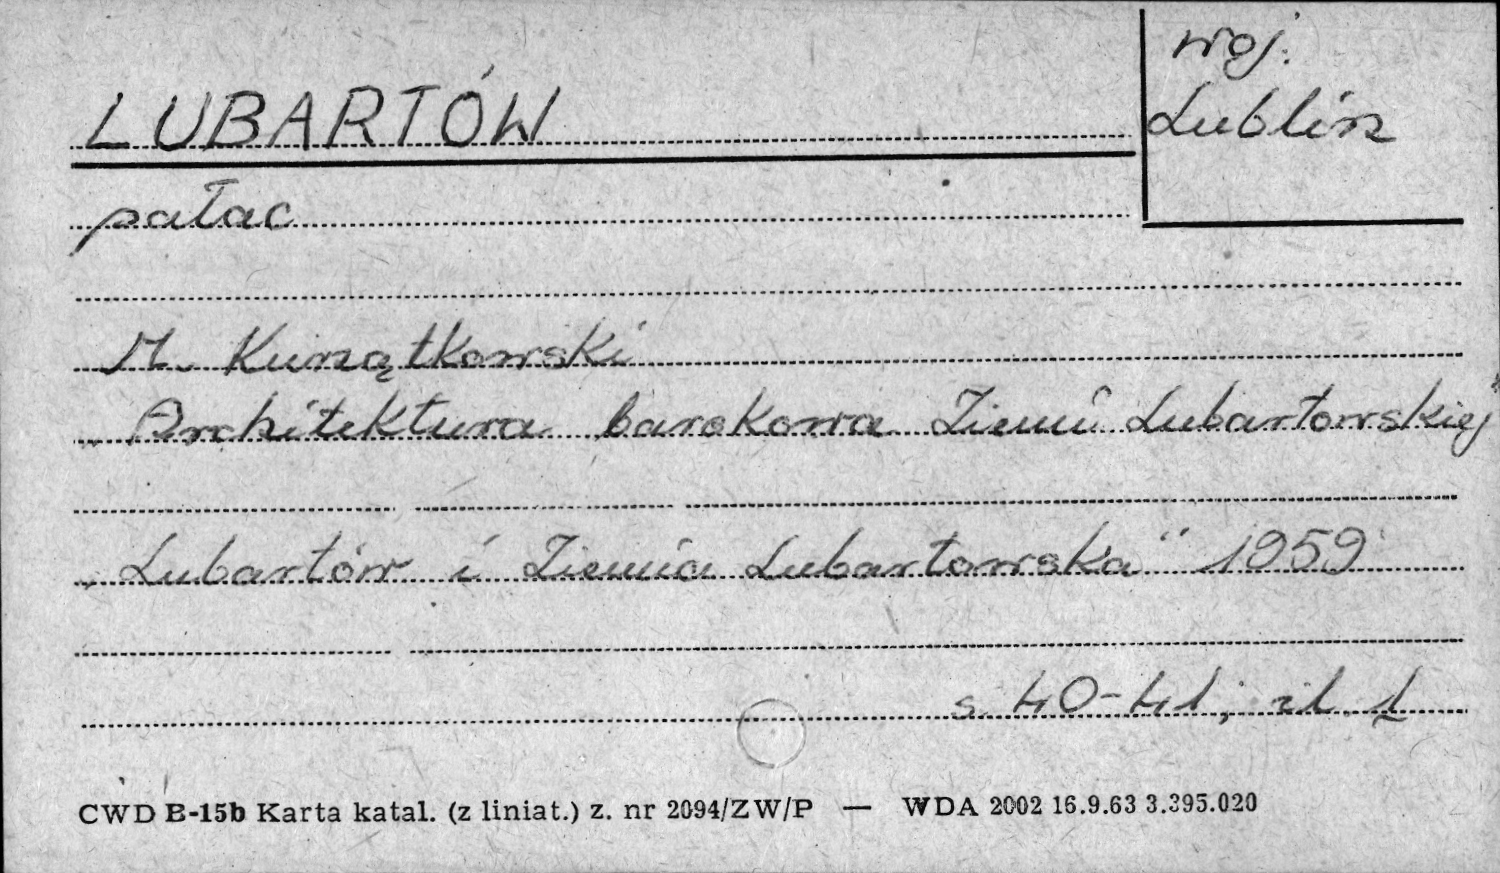 woj.
Lublin
LUBARTÓW
pałac
M. Kurzątkowski
„Architektura barokowa Ziemi Lubartowskiej"
„Lubartów i Ziemia Lubartowska" 1959
s. 40-41; il. 1
CWD B-15b Karta katal. (z liniat.) z. nr 2094/ZW/P — WDA 2002 16.9.63 3.395.020